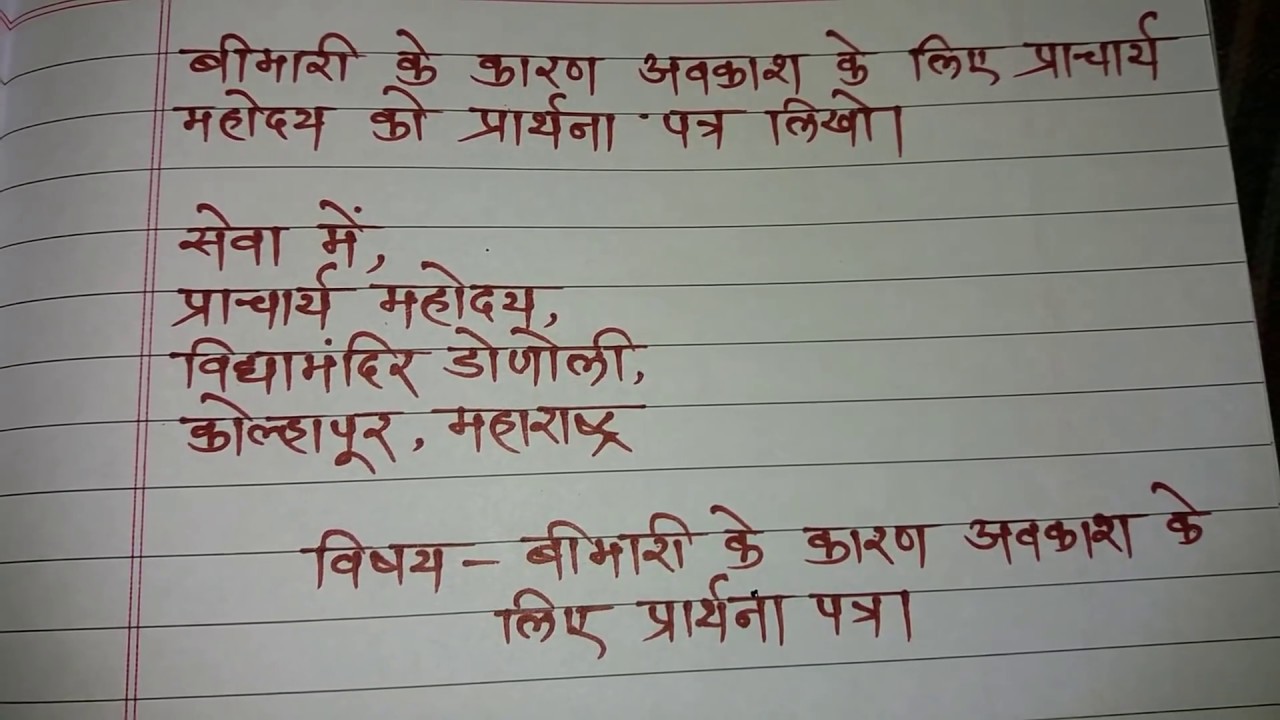 बीमारी के कारण अवकाश के लिए प्राचार्य
महोदय को प्रार्थना पत्र लिखो।
सेवा में,
प्राचार्य महोदय,
विद्यामंदिर डोणोली,
कोल्हापूर, महाराष्ट्र
विषय - बीमारी के कारण अवकाश के
लिए प्रार्थना पत्र।